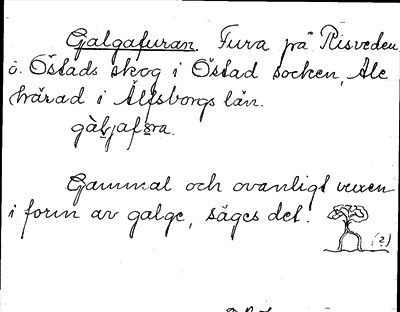 Galgafuran. Fura på Risveden
å Östads skog i Östad socken, Ale
härad i Älfsborgs län.
Gammal och ovanligt vuxen
i form av galge, säges det.
(?)